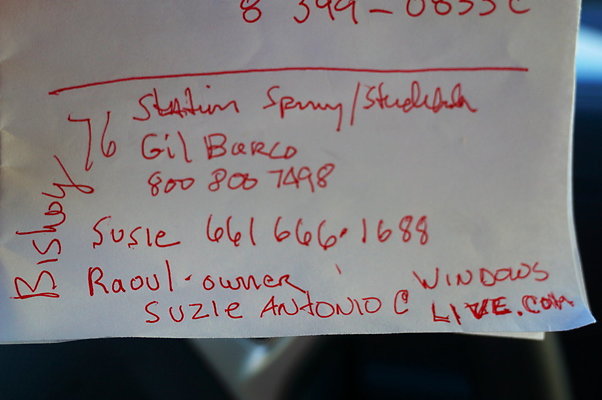 8 399-0833C
76 Station Spring/Studebaker
Gil Barco
800 800 7498
Susie 661 666-1688
Raoul-owner
Suzie Antonio @ Windows
Live.com
Bishop